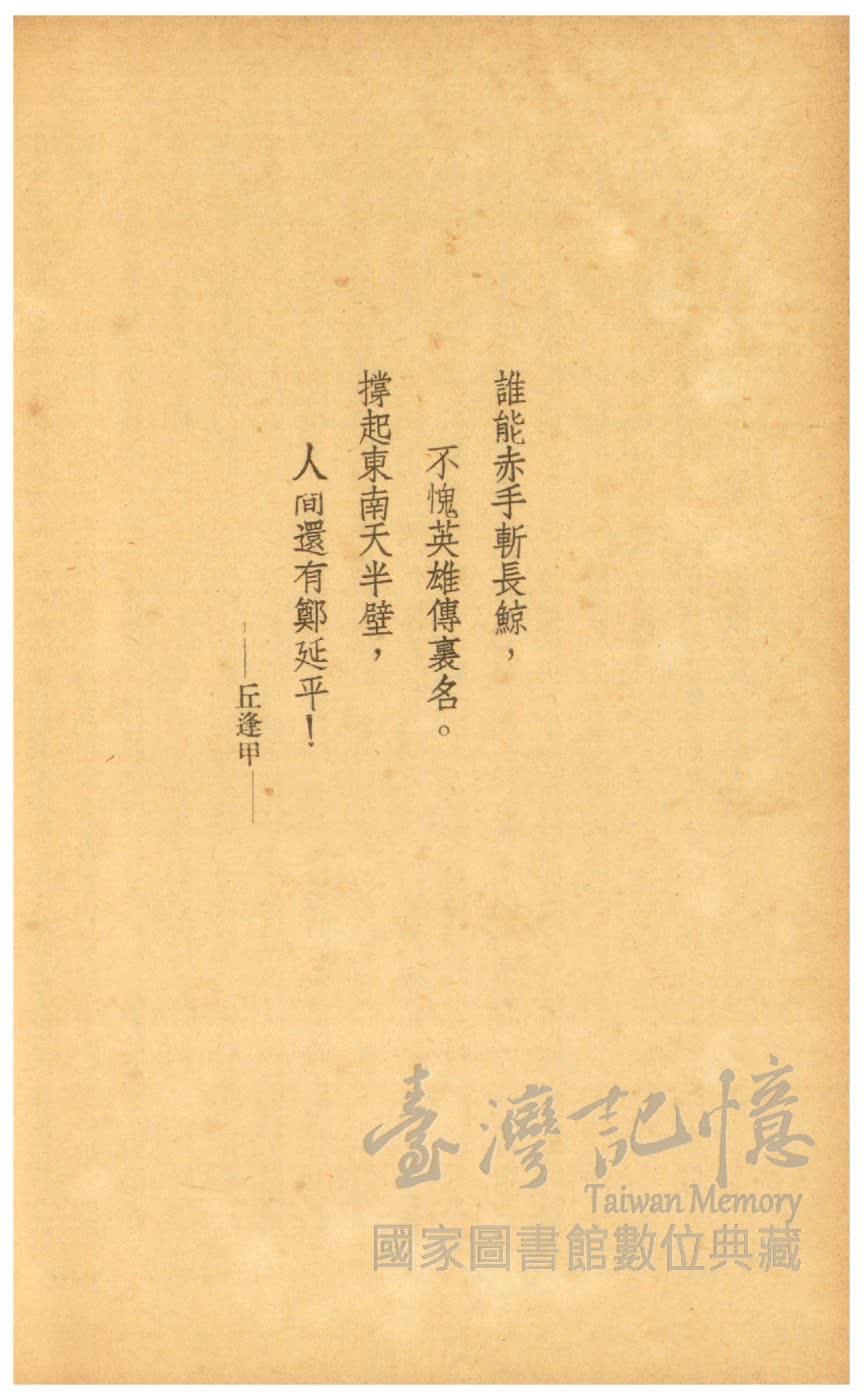 誰能赤手斬長鯨，
不愧英雄傳裏名。
撐起東南天半壁，
人間還有鄭延平！
——丘逢甲——
臺灣記憶
Taiwan Memory
國家圖書館數位典藏